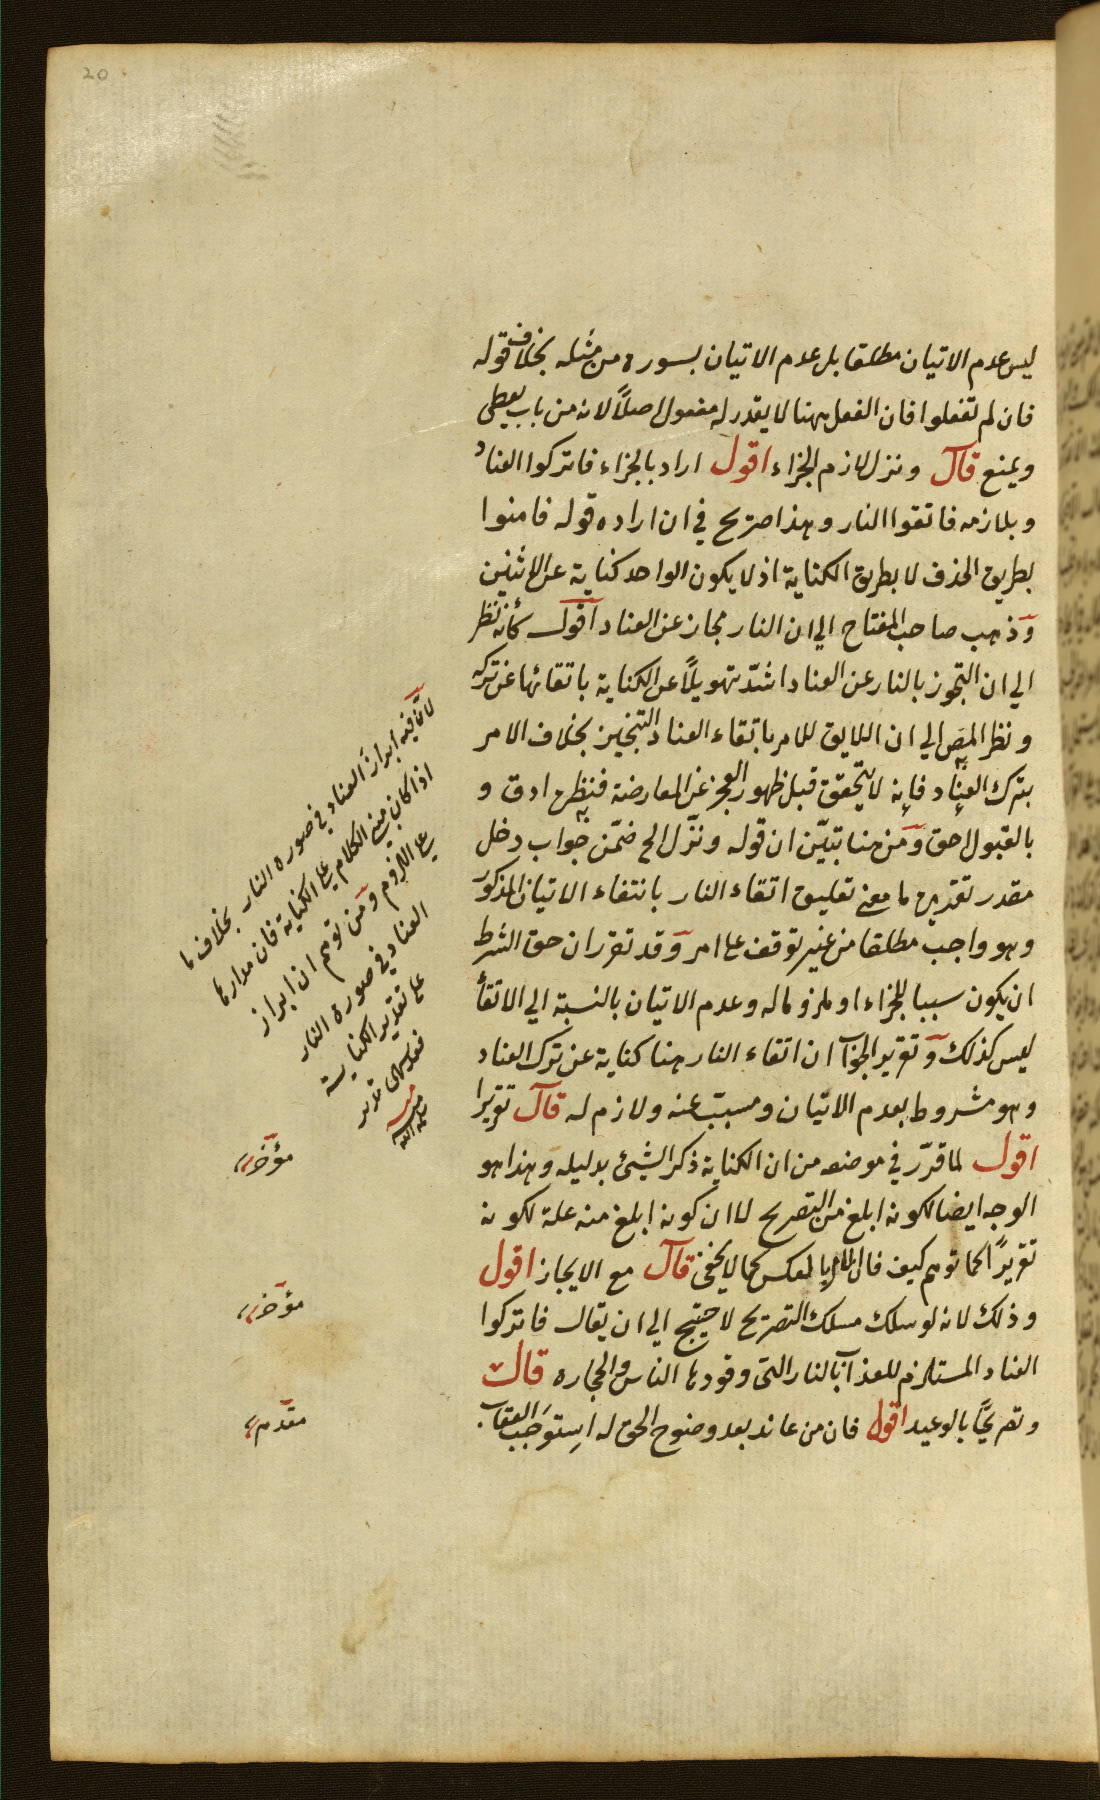 20
ليس عدم الاتيان مطلقا بل عدم الاتيان بسورة من مثله بخلاف قوله
فان لم تفعلوا فان الفعل ههنا لا يقدر له مفعول اصلاً لانه من باب يعطى
ويمنع قال ونزل لازم الجزاء اقول اراد بالجزاء فاتركوا العناد
وبلازمه فاتقوا النار وهذا صريح في ان اراده قوله فامنوا
بطريق الحذف لا بطريق الكناية اذ لا يكون الواحد كناية عن الاثنين
وذهب صاحب المفتاح الي ان النار مجاز عن العناد اقول كأنه نظر
الي ان التجوز بالنار عن العناد اشدّ تهويلاً عن الكناية باتقائها عن تركه
ونظر المص الي ان اللايق للامر باتقاء العناد التنجيز بخلاف الامر
بترك العناد فإنه لا يتحقق قبل ظهور العجز عن المعارضة فنظره ادق و
بالقبول احق ومن هنا تبيّن ان قوله ونزّل الخ ضمّن جواب دخل
مقدر تقديره ما معنى تعليق اتقاء النار بانتفاء الاتيان المذكور
وهو واجب مطلقا من غير توقف علي امر وقد تقرر ان حق الشرط
ان يكون سببا للجزاء او ملزوما له وعدم الاتيان بالنسبة الي الاتقأ
ليس كذلك وتقرير الجواب ان اتقاء النار هنا كناية عن ترك العناد
وهو مشروط بعدم الاتيان ومسبب عنه ولازم له قال تقريرا
اقول لما قدّر في موضعه من ان الكناية ذكر الشيئ بدليله وهذا هو
الوجه ايضا لكونه ابلغ من التصريح لا ان كونه ابلغ منه علة لكونه
تقريرًا كما توهم كيف فان الامر بالعكس كما لا يخفى قال مع الايجاز اقول
وذلك لانه لو سلك مسلك التصريح لاحتيج الي ان يقال فاتركوا
العناد المستلزم للعذاب بالنار التى وقودها الناس والحجاره قال
وتصريحًا بالوعيد اقول فان من عاند بعد وضوح الحق له استوجب العقاب
لان فيه ابراز العناد في صورة النار بخلاف ما
اذا كان مبنى الكلام علي الكناية فان مدارها
علي اللزوم ومن توهم ان ابراز
العناد في صورة النار
علي تقدير الكناية
منه
سلمه الله
مؤخر
مؤخر
مقدم